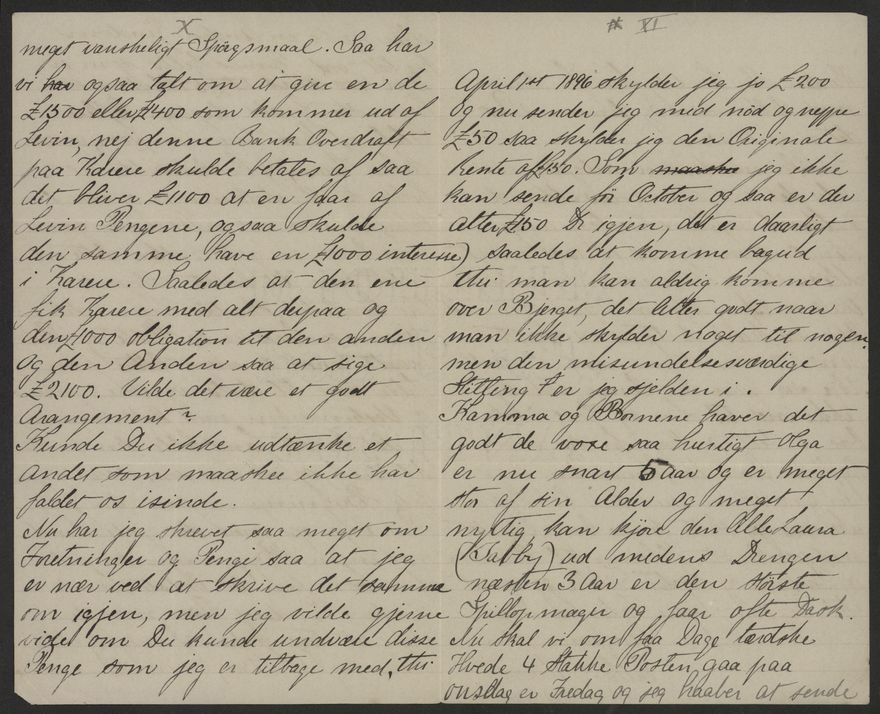 X
meget vanskeligt Spögsmaal. Saa har
vi har ogsaa talt om at give en de
£1300 eller £1400 som kommer ud af
Levin, nej denne Bank Overdraft
paa Karere skulde betales af saa
det bliver £1100 at en faar af
Levin Pengene, ogsaa skulde
den samme have en £1000 interesse
i Karere. Saaledes at den ene
fik Karere med alt derpaa og
den £1000 obligation til den anden
og den Anden saa at sige
£2100. Vilde det være et godt
Arangement?
Kunde Du ikke udtænke et
andet som maaskee ikke har
faldet os isinde.
Nu har jeg skrevet saa meget om
Foretninger og Penge saa at jeg
er nær ved at skrive det samme
om igjen, men jeg vilde gjerne
vide om Du kunde undvære disse
Penge som jeg er tilbage med, thi
XI
April 1st 1896 skylder jeg jo £200
og nu sender jeg med nöd og neppe
£50 saa skylder jeg den Originale
Rente af £150. Som maaskee jeg ikke
kan sende för October og saa er der
atter £150 Dr igjen, det er daarligt
saaledes at komme bagud
thi man kan aldrig komme
over Bjerget, det letter godt naar
man ikke skylder noget til nogen
men den misundelsesværdige
Stilling er jeg sjelden i.
Kamma og Börnene haver det
godt de voxe saa hurtigt Olga
er nu snart 5 aar og er meget
stor af sin Alder og meget
nyttig, kan kjöre den Alle Laura
(Tabby) ud medens Drengen
næsten 3 Aar er den störste
Spillopmager og faar ofte Dask.
Nu skal vi om faa Dage tærdske
Hvede 4 Stakke Posten gaa paa
onsdag er Fredag og jeg haaber at sende